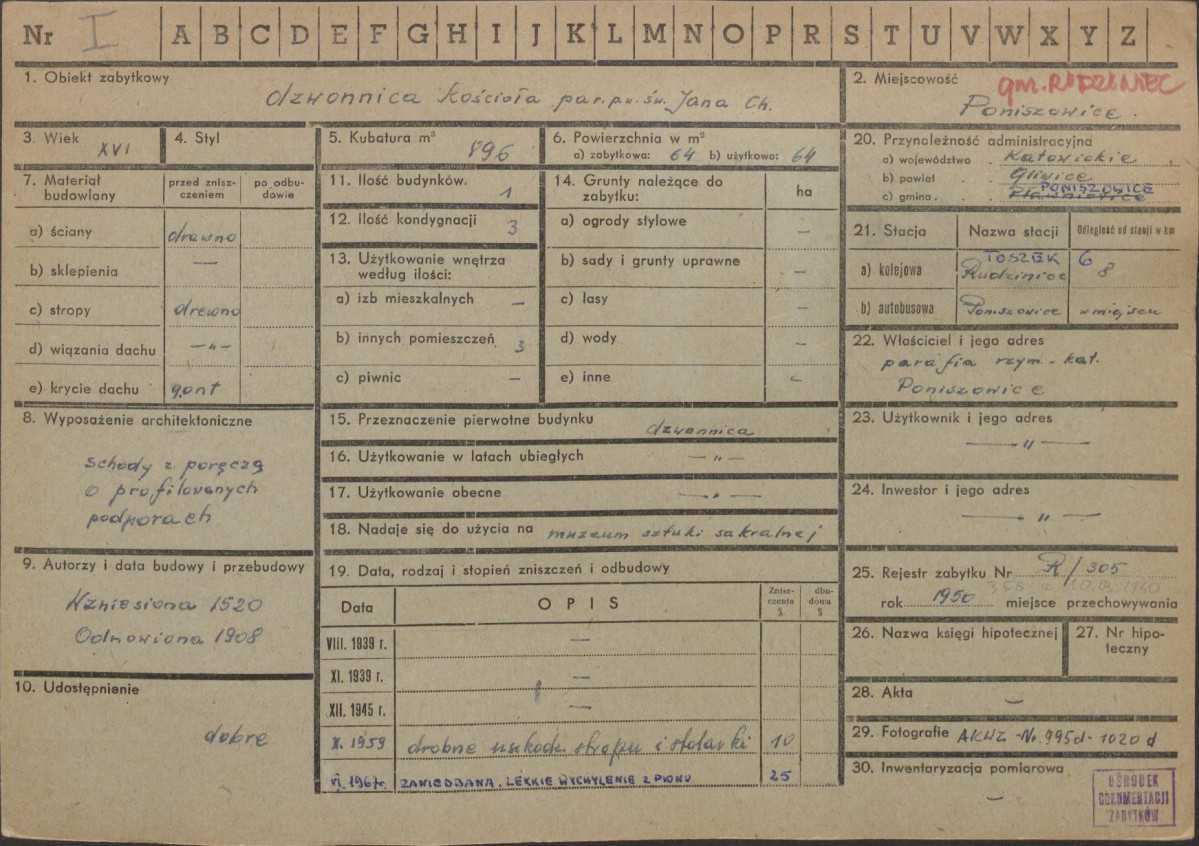 Nr I A B C D E F G H I J K L M N O P R S T U V W X Y Z
1. Obiekt zabytkowy
dzwonnica Kościoła par. p.w. św. Jana Ch.
2. Miejscowość gm. RUDZINIEC
Poniszowice.
3. Wiek
XVI
4. Styl
5. Kubatura m³
896
6. Powierzchnia w m²
a) zabytkowa: 64 b) użytkowa: 64
7. Materiał budowlany
przed znisz-
czeniem
po odbu-
dowie
a) ściany drewno
b) sklepienia —
c) stropy drewno
d) wiązania dachu —„—
e) krycie dachu gont
8. Wyposażenie architektoniczne
schody z poręczą
o profilowanych
podporach
9. Autorzy i data budowy i przebudowy
Wzniesiona 1520
Odnowiona 1908
10. Udostępnienie
dobre
11. Ilość budynków.
1
12. Ilość kondygnacji 3
13. Użytkowanie wnętrza
według ilości:
a) izb mieszkalnych —
b) innych pomieszczeń 3
c) piwnic —
14. Grunty należące do
zabytku:
ha
a) ogrody stylowe —
b) sady i grunty uprawne —
c) lasy —
d) wody —
e) inne —
15. Przeznaczenie pierwotne budynku dzwonnica
16. Użytkowanie w latach ubiegłych —„—
17. Użytkowanie obecne —„—
18. Nadaje się do użycia na muzeum sztuki sakralnej
19. Data, rodzaj i stopień zniszczeń i odbudowy
Data OPIS
Znisz-
czenia
%
dbu-
dowa
%
VIII. 1939 r. —
XI. 1939 r. —
XII. 1945 r. —
X. 1959 drobne uszkodz. stropu i stolarki 10
VI. 1967r. ZANIEDBANA. LEKKIE WYCHYLENIE Z PIONU. 25
20. Przynależność administracyjna
a) województwo Katowickie
b) powiat Gliwice
PONISZOWICE
c) gmina Pławniowice
21. Stacja Nazwa stacji Odległość od stacji w km
TOSZEK 6
a) kolejowa Rudziniec 8
b) autobusowa Poniszowice w miejscu
22. Właściciel i jego adres
parafia rzym. - kat.
Poniszowice
23. Użytkownik i jego adres
—„—
24. Inwestor i jego adres
—„—
25. Rejestr zabytku Nr R/305
rok 1950 miejsce przechowywania
26. Nazwa księgi hipotecznej
27. Nr hipo-
teczny
28. Akta —
29. Fotografie AKWZ - Nr. 995d - 1020 d
30. Inwentaryzacja pomiarowa
—
OŚRODEK
DOKUMENTACJI
ZABYTKÓW